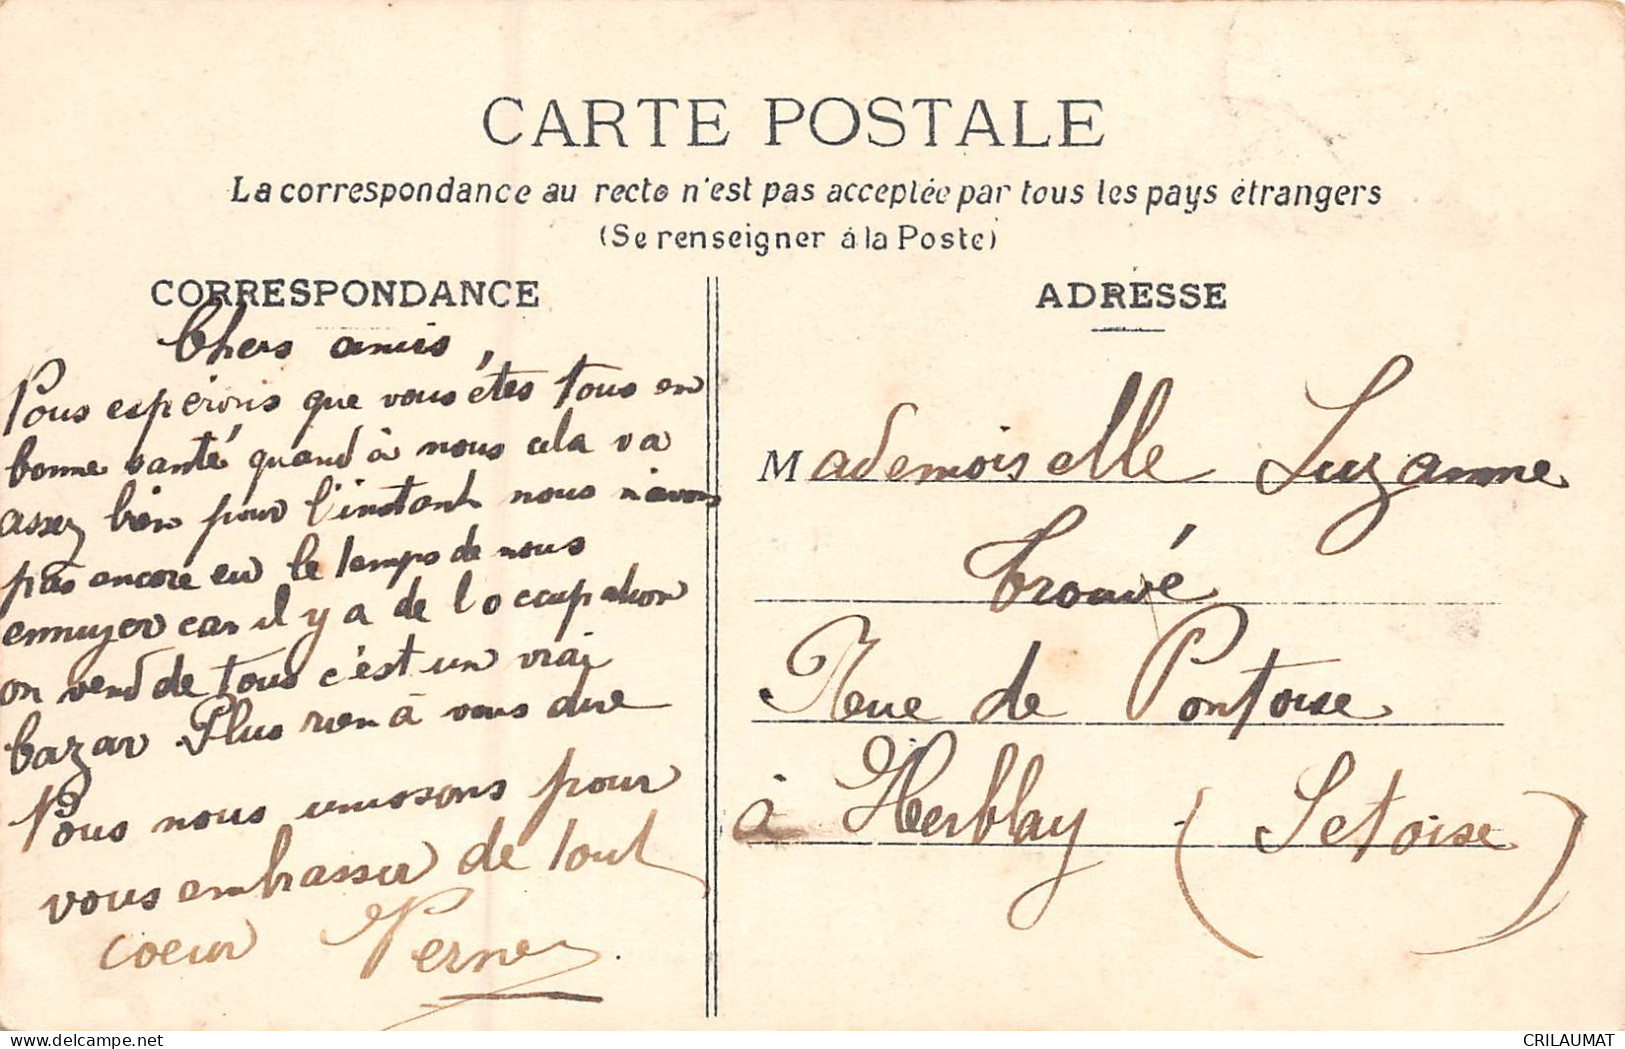 CARTE POSTALE
La correspondance au recto n'est pas acceptée par tous les pays étrangers
(Se renseigner à la Poste)
CORRESPONDANCE
Chers amis,
Nous espérons que vous êtes tous en
bonne santé quand à nous cela va
assez bien pour l'instant nous n'avons
pas encore eu le temps de nous
ennuyer car il y a de l'occupation
on vend de tout c'est un vrai
bazar. Plus rien à vous dire
Nous nous unissons pour
vous embrasser de tout
coeur
ADRESSE
Mademoiselle Suzanne
Trouvé
Rue de Pontoise
à Herblay (S et oise)
delcampe.net
CRILAUMAT